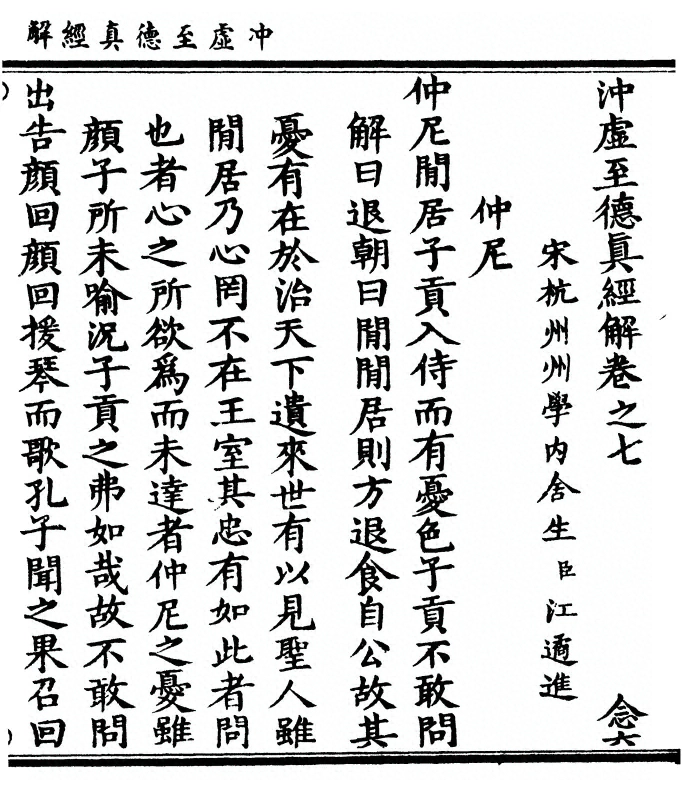 冲虛至德真經解
沖虛至德眞經解卷之七
念六
宋杭州州學内舍生臣江遹進
仲尼
仲尼閒居子貢入侍而有憂色子貢不敢問
解曰退朝曰閒閒居則方退食自公故其
憂有在於治天下遺來世有以見聖人雖
閒居乃心罔不在王室其忠有如此者問
也者心之所欲爲而未達者仲尼之憂雖
顔子所未喻況子貢之弗如哉故不敢問
出告顔回顔回援琴而歌孔子聞之果召回